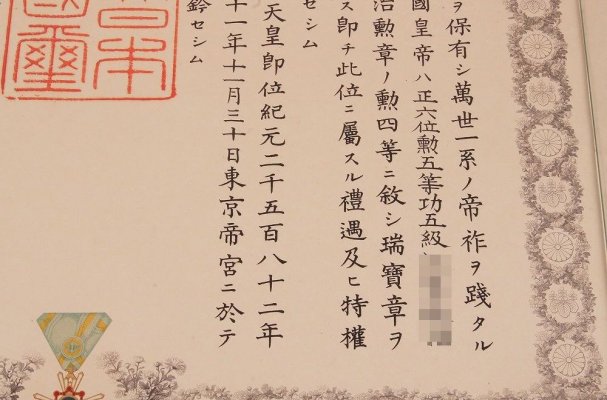 ヲ保有シ萬世一系ノ帝祚ヲ踐タル
國皇帝ハ正六位勲五等功五級
治勲章ノ勲四等ニ敘シ瑞寶章ヲ
ス即チ此位ニ屬スル禮遇及ヒ特權
セシム
天皇即位紀元二千五百八十二年
十一年十一月三十日東京帝宮ニ於テ
鈐セシム
日本
國璽